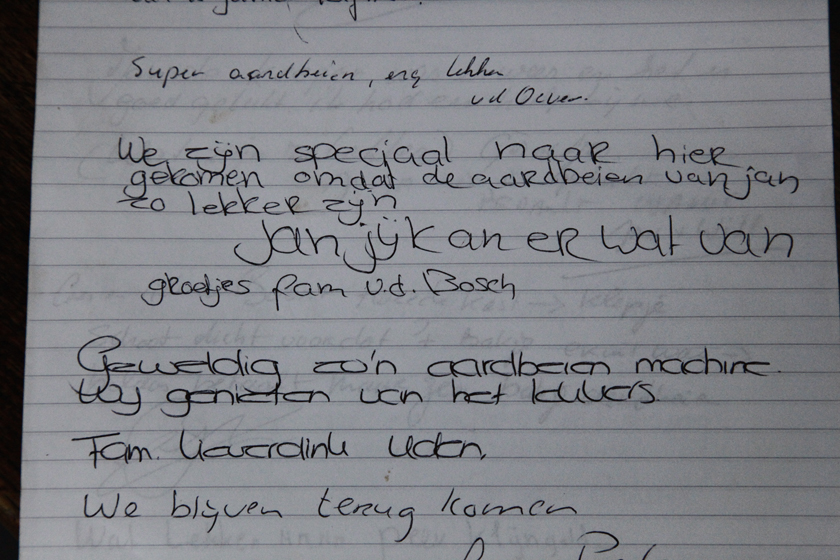 Super aardbeien, erg lekker
vd Oever.
We zijn speciaal naar hier
gekomen omdat de aardbeien van jan
zo lekker zijn
Jan jij kan er wat van
groetjes fam v.d. Bosch
Geweldig zo'n aardbeien machine.
Wij genieten van het lekkers
Fam. Uden.
We blijven terug komen